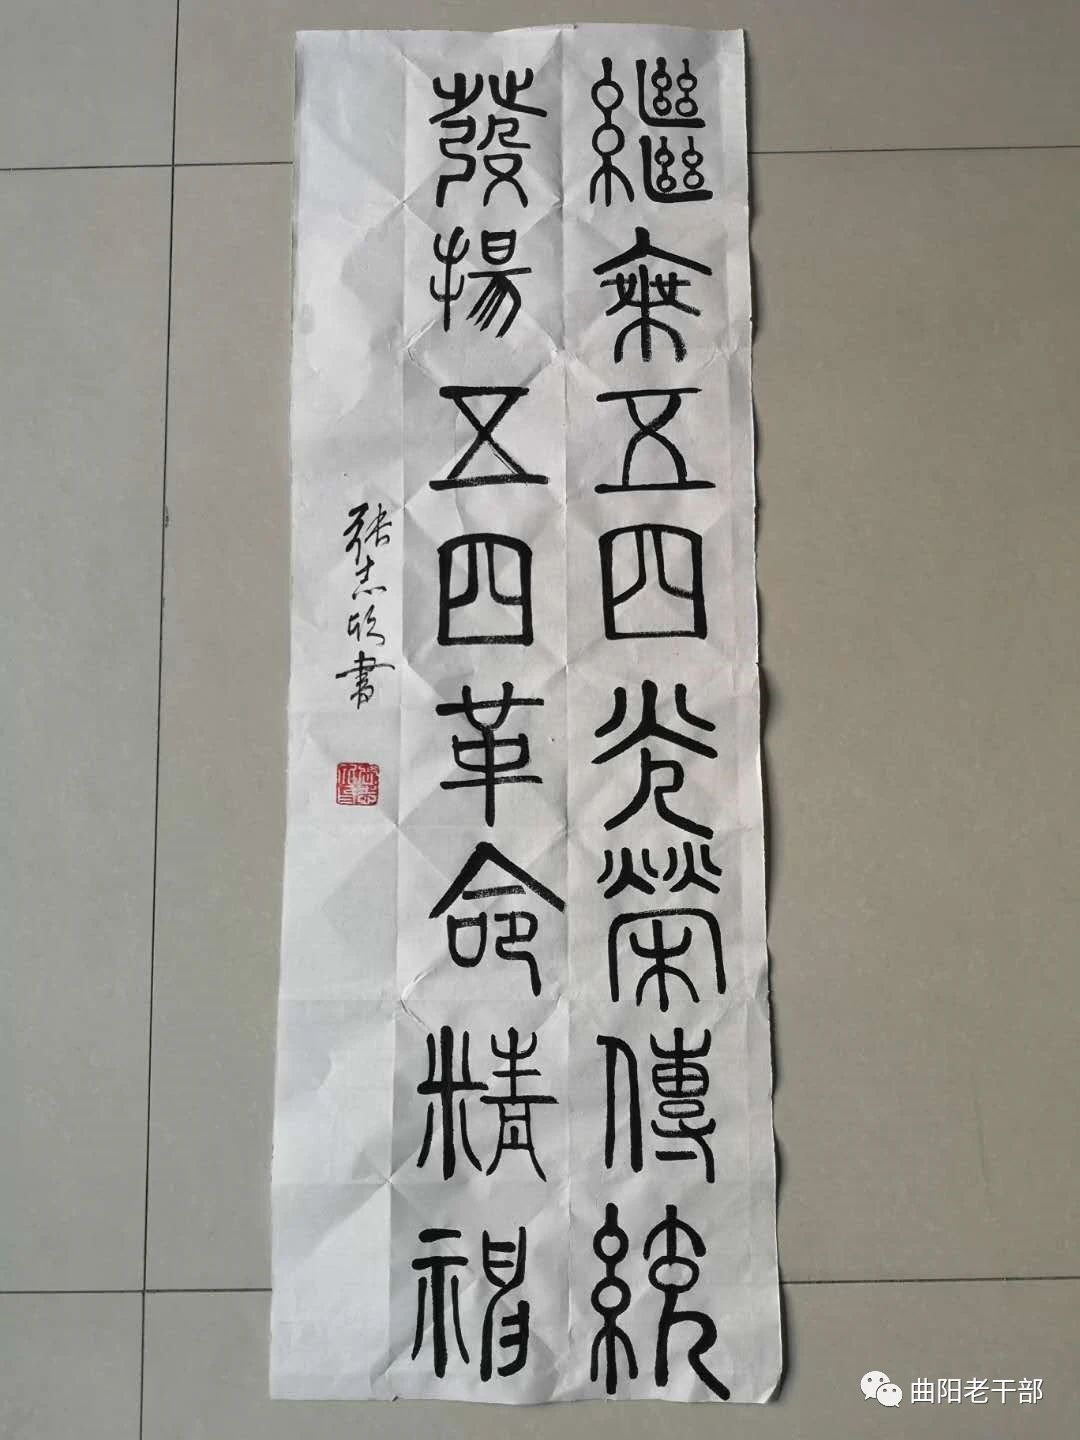 繼乘五四光榮傳統
發揚五四革命精神
張志欣書
曲阳老干部